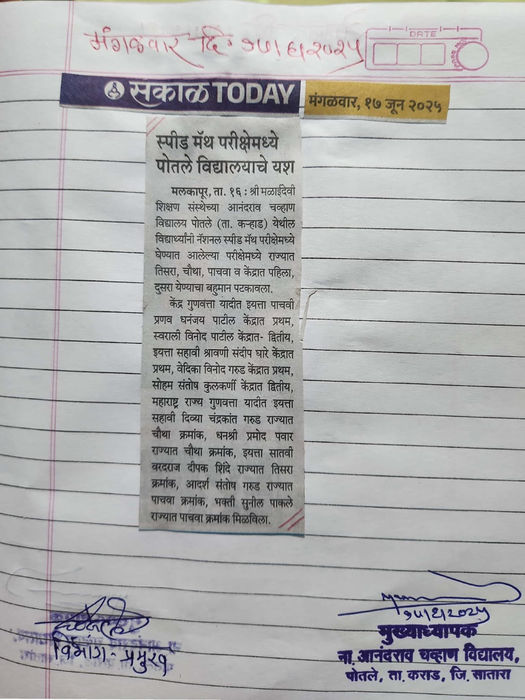 मंगळवार दि. १७/६/२०२५
DATE
सकाळ TODAY
मंगळवार, १७ जून २०२५
स्पीड मॅथ परीक्षेमध्ये
पोतले विद्यालयाचे यश
मलकापूर, ता. १६ : श्री मळाईदेवी
शिक्षण संस्थेच्या आनंदराव चव्हाण
विद्यालय पोतले (ता. कऱ्हाड) येथील
विद्यार्थ्यांनी नॅशनल स्पीड मॅथ परीक्षेमध्ये
घेण्यात आलेल्या परीक्षेमध्ये राज्यात
तिसरा, चौथा, पाचवा व केंद्रात पहिला,
दुसरा येण्याचा बहुमान पटकावला.
केंद्र गुणवत्ता यादीत इयत्ता पाचवी
प्रणव धनंजय पाटील केंद्रात प्रथम,
स्वराली विनोद पाटील केंद्रात- द्वितीय,
इयत्ता सहावी श्रावणी संदीप घारे केंद्रात
प्रथम, वेदिका विनोद गरुड केंद्रात प्रथम,
सोहम संतोष कुलकर्णी केंद्रात द्वितीय,
महाराष्ट्र राज्य गुणवत्ता यादीत इयत्ता
सहावी दिव्या चंद्रकांत गरुड राज्यात
चौथा क्रमांक, धनश्री प्रमोद पवार
राज्यात चौथा क्रमांक, इयत्ता सातवी
वरदराज दीपक शिंदे राज्यात तिसरा
क्रमांक, आदर्श संतोष गरुड राज्यात
पाचवा क्रमांक, भक्ती सुनील पाकले
राज्यात पाचवा क्रमांक मिळविला.
विभाग-प्रमुख
१७/६/२०२५
मुख्याध्यापक
ना. आनंदराव चव्हाण विद्यालय,
पोतले, ता. कराड, जि. सातारा